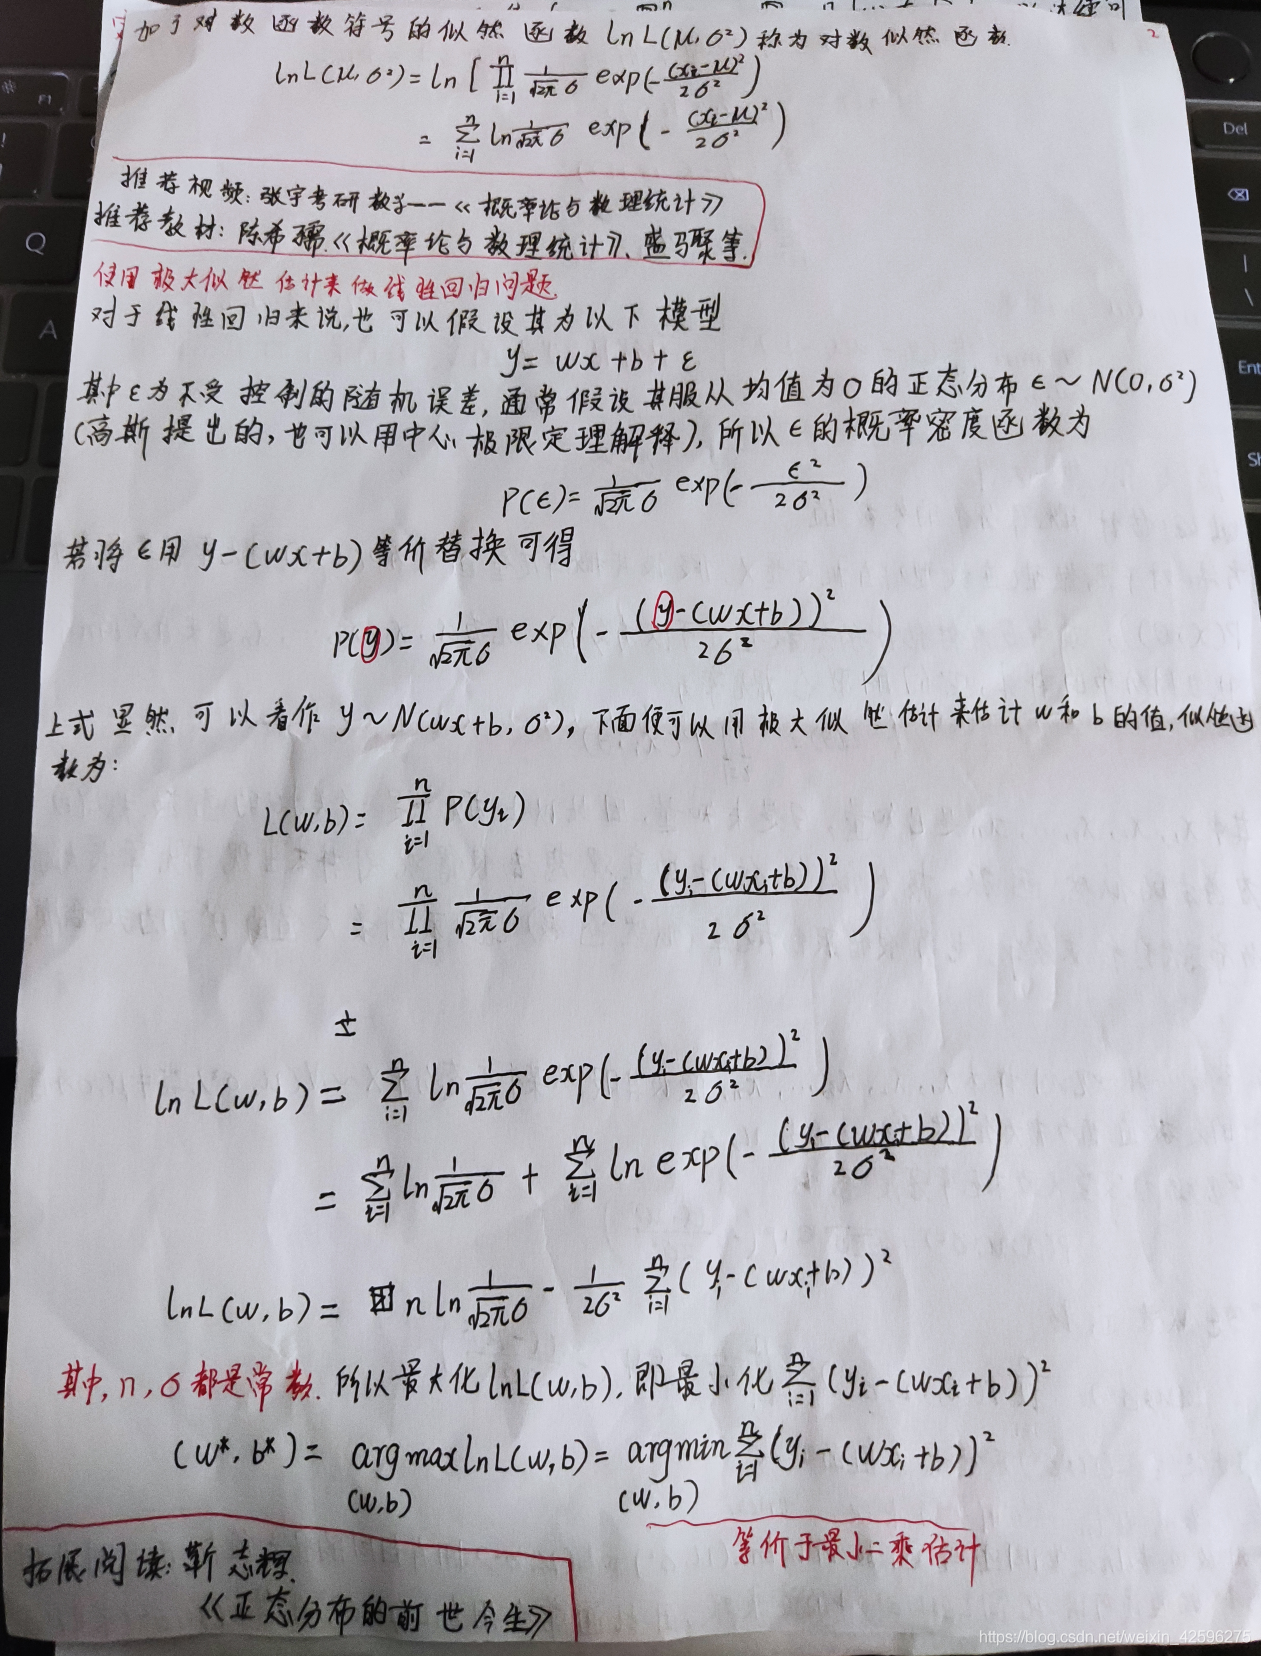 加了对数函数符号的似然函数 lnL(μ,σ²)称为对数似然函数 2
lnL(μ,σ²)=ln[∏ᵢ₌₁ⁿ 1/(√2π σ) exp(-(xᵢ-μ)²/2σ²)
= ∑ᵢ₌₁ⁿ ln 1/(√2π σ) exp(-(xᵢ-μ)²/2σ²)
推荐视频:张宇考研数学——《概率论与数理统计》
推荐教材:陈希孺.《概率论与数理统计》、盛马聚等.
使用极大似然估计来做线性回归问题
对于线性回归来说,也可以假设其为以下模型
y= wx+b+ε
其中ε为不受控制的随机误差,通常假设其服从均值为0的正态分布ϵ~N(0,σ²)
(高斯提出的,也可以用中心极限定理解释),所以ϵ的概率密度函数为
P(ϵ)= 1/(√2π σ) exp(-ϵ²/2σ²)
若将ϵ用 y-(wx+b)等价替换可得
P(y)= 1/(√2π σ) exp(-(y-(wx+b))²/2σ²)
上式显然可以看作 y~N(wx+b,σ²),下面便可以用极大似然估计来估计w和b的值,似然函
数为:
L(w,b)= ∏ᵢ₌₁ⁿ P(yᵢ)
= ∏ᵢ₌₁ⁿ 1/(√2π σ) exp(-(yᵢ-(wxᵢ+b))²/2σ²)
lnL(w,b)= ∑ᵢ₌₁ⁿ ln 1/(√2π σ) exp(-(yᵢ-(wxᵢ+b))²/2σ²)
= ∑ᵢ₌₁ⁿ ln 1/(√2π σ) + ∑ᵢ₌₁ⁿ ln exp(-(yᵢ-(wxᵢ+b))²/2σ²)
lnL(w,b)= n ln 1/(√2π σ) - 1/2σ² ∑ᵢ₌₁ⁿ(yᵢ-(wxᵢ+b))²
其中,n,σ都是常数.所以最大化lnL(w,b),即最小化∑ᵢ₌₁ⁿ(yᵢ-(wxᵢ+b))²
(w*,b*)= argmax lnL(w,b)= argmin ∑ᵢ₌₁ⁿ(yᵢ-(wxᵢ+b))²
(w,b) (w,b)
等价于最小二乘估计
拓展阅读:靳志辉.
《正态分布的前世今生》
https://blog.csdn.net/weixin_42596275
F1
Q
A
Del
Ent